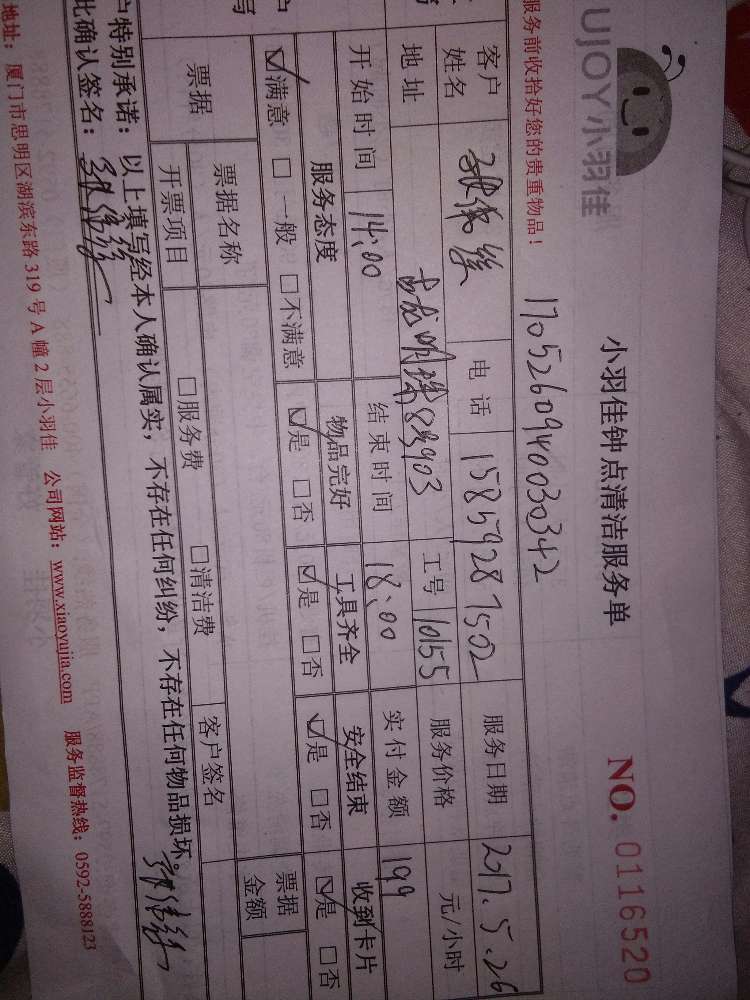 UJOY小羽佳
小羽佳钟点清洁服务单
NO. 0116520
服务前收拾好您的贵重物品！
1705260940030342
客户姓名 电话 15859287502 服务日期 2017.5.26
地址 8#903 工号 10155 服务价格 元/小时
开始时间 14:00 结束时间 18:00 实付金额 199
服务态度 物品完好 工具齐全 安全结束 收到卡片
☑满意 □一般 □不满意 ☑是 □否 ☑是 □否 ☑是 □否 ☑是 □否
票据 票据名称 票据金额
开票项目 □服务费 □清洁费 客户签名
户特别承诺：以上填写经本人确认属实，不存在任何纠纷，不存在任何物品损坏。
此确认签名：
地址：厦门市思明区湖滨东路319号A幢2层小羽佳 公司网站：www.xiaoyujia.com 服务监督热线：0592-5888123